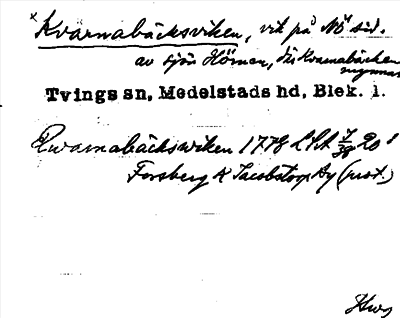 x Kvarnabäcksviken, vik på NÖ sid.
av sjön Hörnen, där Kvarnabäcken
mynnar
Tvings sn, Medelstads hd, Blek. l.
Qwarnabäckswiken 1778 LSA
Forsberg & Jacobstorp Äg (prot.)